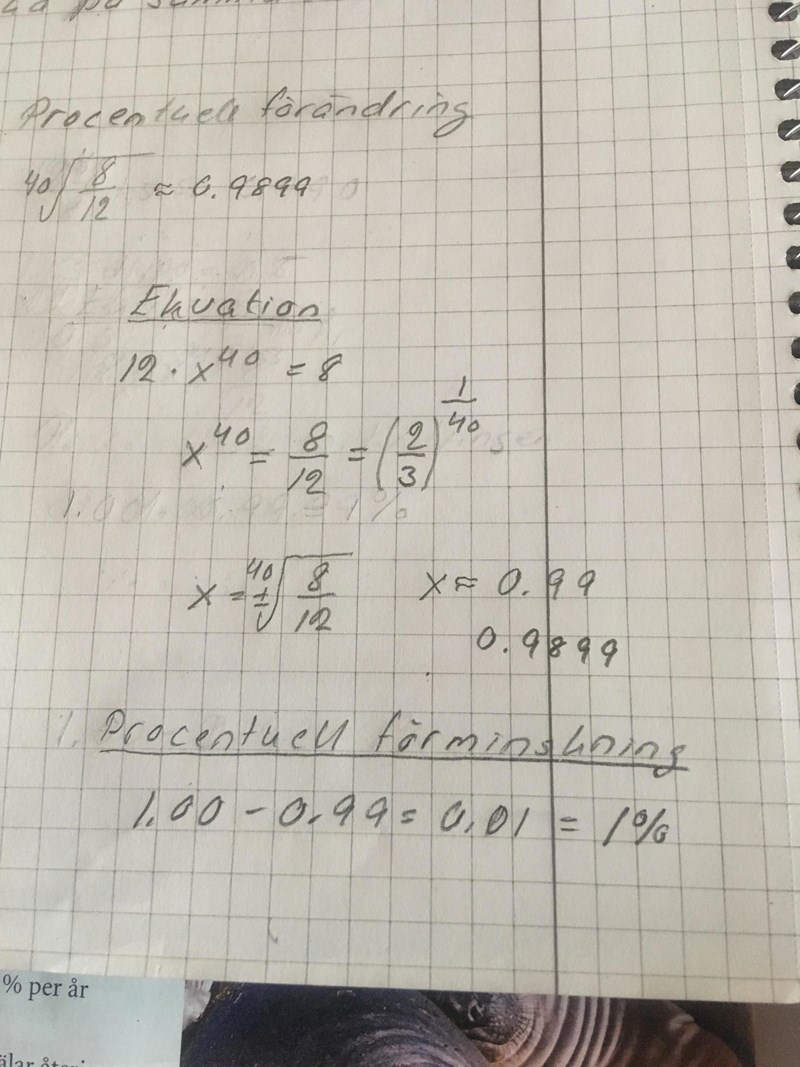 på summa
Procentuell förändring
⁴⁰√(8/12) ≈ 0.9899
Ekvation
12 · x⁴⁰ = 8
x⁴⁰ = 8/12 = (2/3)^(1/40)
x = ±⁴⁰√(8/12) x ≈ 0.99
0.9899
1. Procentuell förminskning
1.00 - 0.99 = 0,01 = 1%
% per år